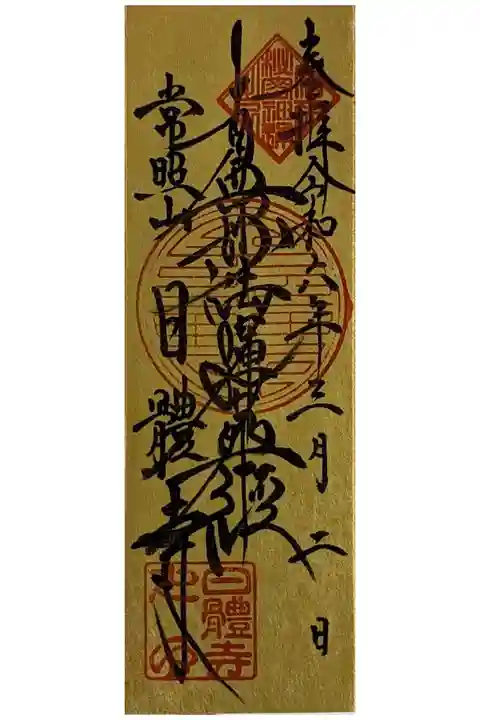 奉拝 令和六年三月 日
南無妙法蓮華經
常照山 日體寺
日體寺
之印